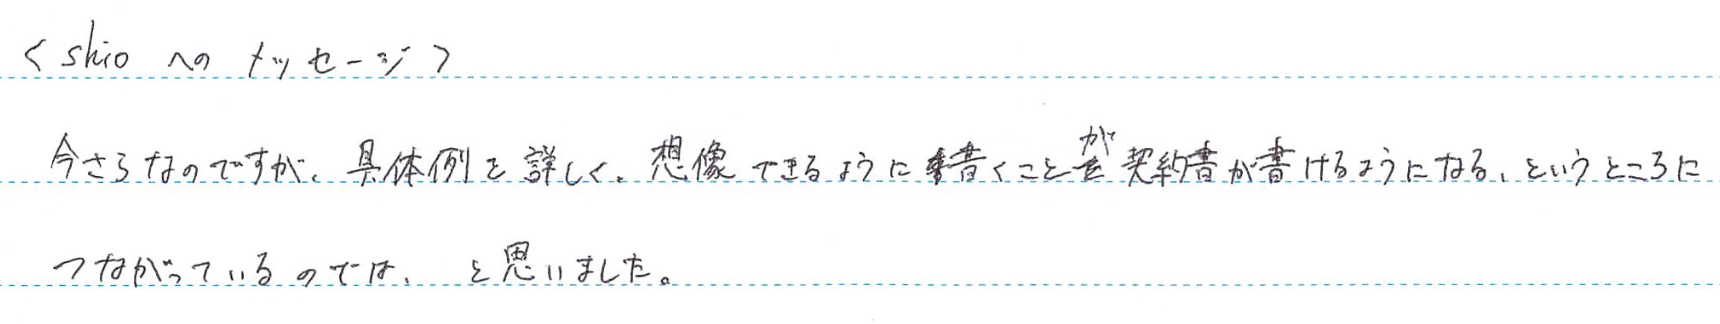 <shioへのメッセージ>
今さらなのですが、具体例を詳しく、想像できるように書くことが契約書が書けるようになる、というところに
つながっているのでは、と思いました。